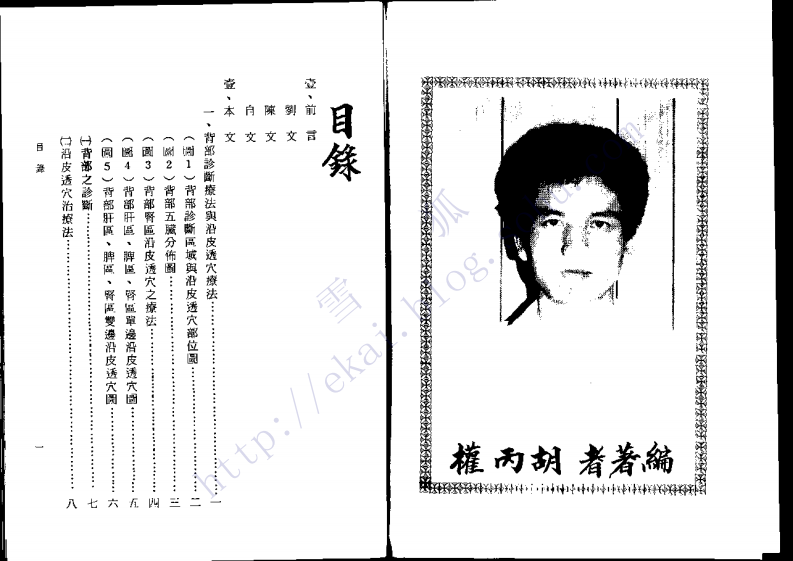 編著者 胡丙權
目錄
壹、前言
劉文
陳文
自文
壹、本文
一、背部診斷療法與沿皮透穴療法……一
（圖1）背部診斷區域與沿皮透穴部位圖……二
（圖2）背部五臟分佈圖……三
（圖3）背部腎區沿皮透穴之療法……四
（圖4）背部肝區、脾區、腎區單邊沿皮透穴圖……五
（圖5）背部肝區、脾區、腎區雙邊沿皮透穴圖……六
㈠背部之診斷……七
㈡沿皮透穴治療法……八
目錄
一
雪狐
http://ekai.blog.